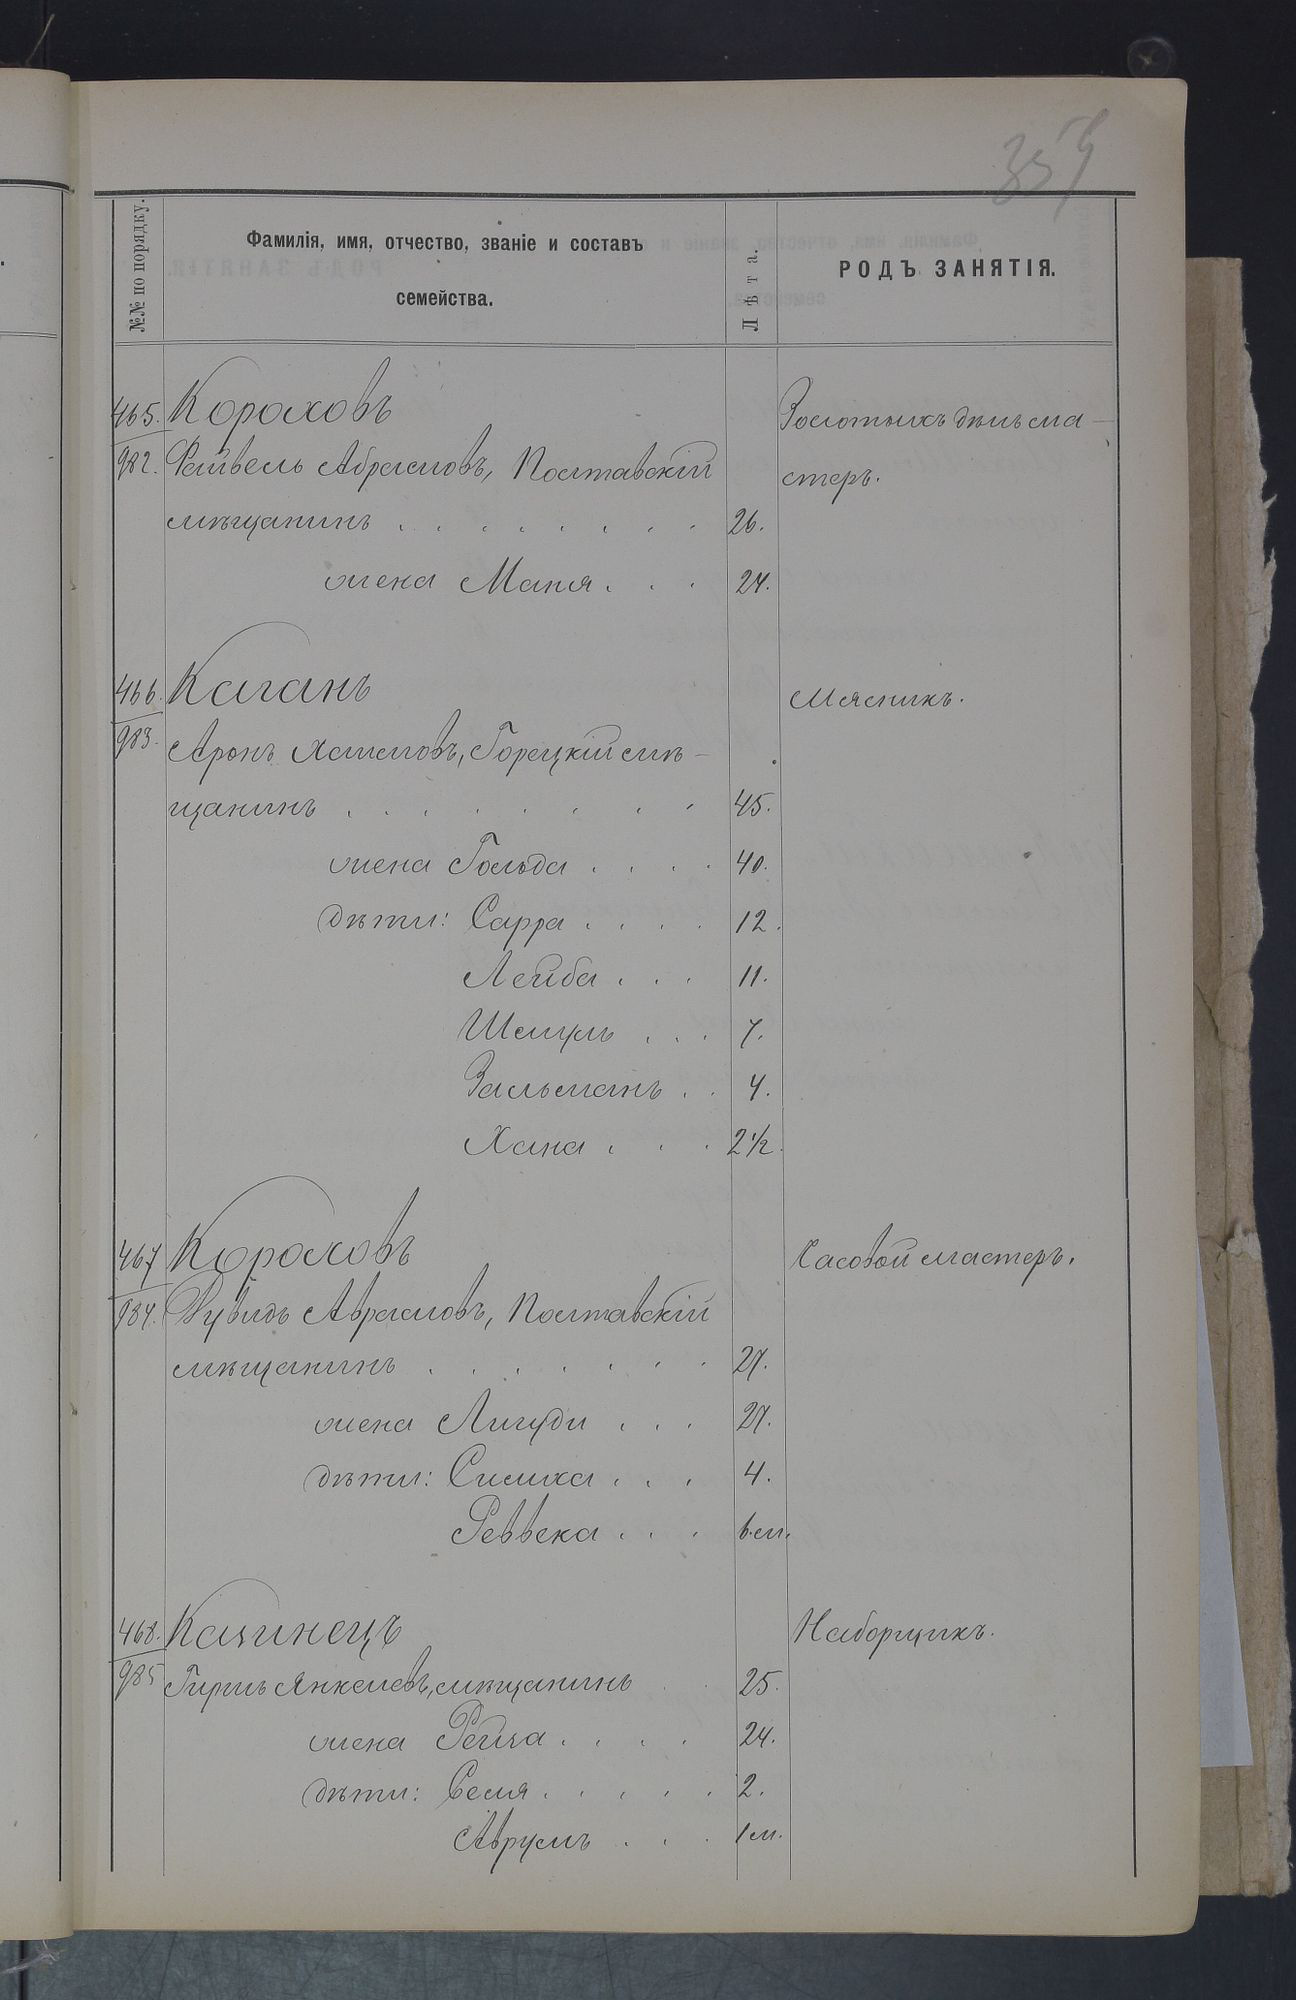 359
№№ по порядку.
Фамилія, имя, отчество, званіе и составъ
семейства.
Лѣта.
РОДЪ ЗАНЯТІЯ.
465. Кораховъ Золотыхъ дѣлъ ма-
982. Файвель Абрамовъ, Полтавскій стеръ.
мѣщанинъ . . . . . . . . 26.
жена Маня . . . 24.
466. Каганъ Мясникъ.
983. Аронъ Хаимовъ, Горецкій мѣ-
щанинъ . . . . . . . 45.
жена Гольда . . . . 40.
дѣти: Сарра . . . . 12.
Лейба . . . 11.
Шмуль . . . 7.
Зальманъ . . 4.
Хана . . . 2 1/2.
467 Кораховъ Часовой мастеръ.
984. Дувидъ Аврамовъ, Полтавскій
мѣщанинъ . . . . . . . 27.
жена . . . 27.
дѣти: Симха . . . 4.
Реввека . . . 6 м.
468. Качинецъ Наборщикъ.
985 Гиршъ Янкелевъ, мѣщанинъ . . 25.
жена Рейза . . . . 24.
дѣти: Сеня . . . . . 2.
Аврумъ . . . 1 м.